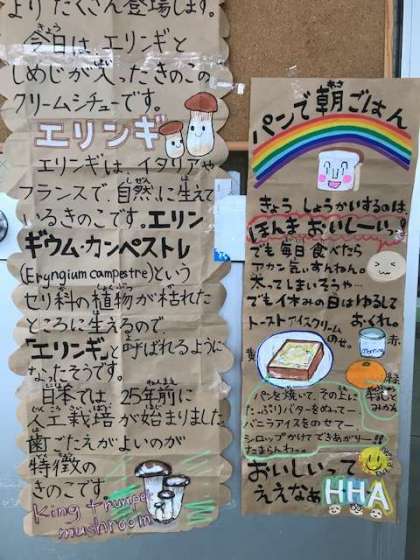 よりたくさん登場します。
今日は、エリンギと
しめじが入ったきのこの
クリームシチューです。
エリンギ
エリンギは、イタリアや
フランスで、自然に生えて
いるきのこです。エリン
ギウム・カンペストレ
(Eryngium campestre)という
セリ科の植物が枯れた
ところに生えるので、
「エリンギ」と呼ばれるように
なったそうです。
日本では、25年前に
人工栽培が始まりました。
歯ごたえがよいのが
特徴の
きのこです
King trumpet
mushroom
パンで朝ごはん
きょう しょうかいするのは
ほんま おいしーいっ
でも毎日食べたら
アカン気いすんねん。
太ってしまいろうや…
でも休みの日はゆるして
おくれ。
トーストアイスクリーム
のせ。
赤
黄
緑
パンを焼いて、その上に
たっぷりバターをぬってー
バニラアイスをのせてー
シロップかけてできあがりー!!
たまらんわ〜。
おいしいって
ええなぁ
HHA